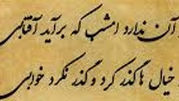 آن ندارد امشب که برآید آفتابی
خیال ها گذر کرد و گذر نکرد خوابی